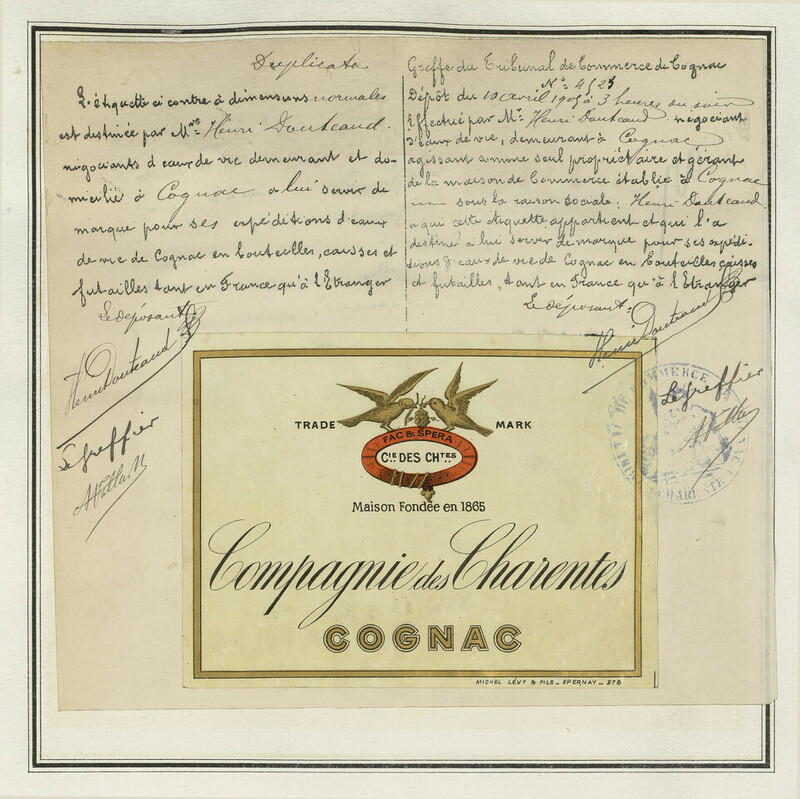 Duplicata
L'étiquette ci contre à dimensions normales
est destinée par Mr Henri Douteaud.
négociants d'eaux de vie demeurant et do-
micilié à Cognac a lui servir de
marque pour ses expéditions d'eaux
de vie de Cognac en bouteilles, caisses et
futailles tant en France qu'à l'Etranger
Le déposant
Henri Douteaud
Le greffier
Greffe du Tribunal de Commerce de Cognac
Dépôt du 10 avril 1905 à 3 heures du soir
Effectué par Mr Henri Douteaud négociant
d'eaux de vie, demeurant à Cognac,
agissant comme seul propriétaire et gérant
de la maison de Commerce établie à Cognac
sous la raison sociale: Henri Douteaud.
a qui cette étiquette appartient et qui l'a
destine a lui servir de marque pour ses expédi-
tions d'eaux de vie de Cognac en bouteilles caisses
et futailles, tant en France qu'à l'Etranger
Le déposant:
Henri Douteaud
Le greffier
COMMERCE
CHARENTE
TRADE MARK
FAC & SPERA
CIE DES CHTES
Maison Fondée en 1865
Compagnie des Charentes
COGNAC
MICHEL LÉVY & FILS _ EPERNAY _ 275